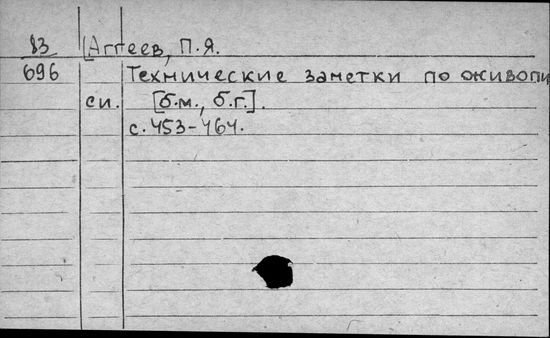 83 [Аггеев, П.Я.
696 Технические заметки по живопи
си. [б.м., б.г.].
с. 453-464.